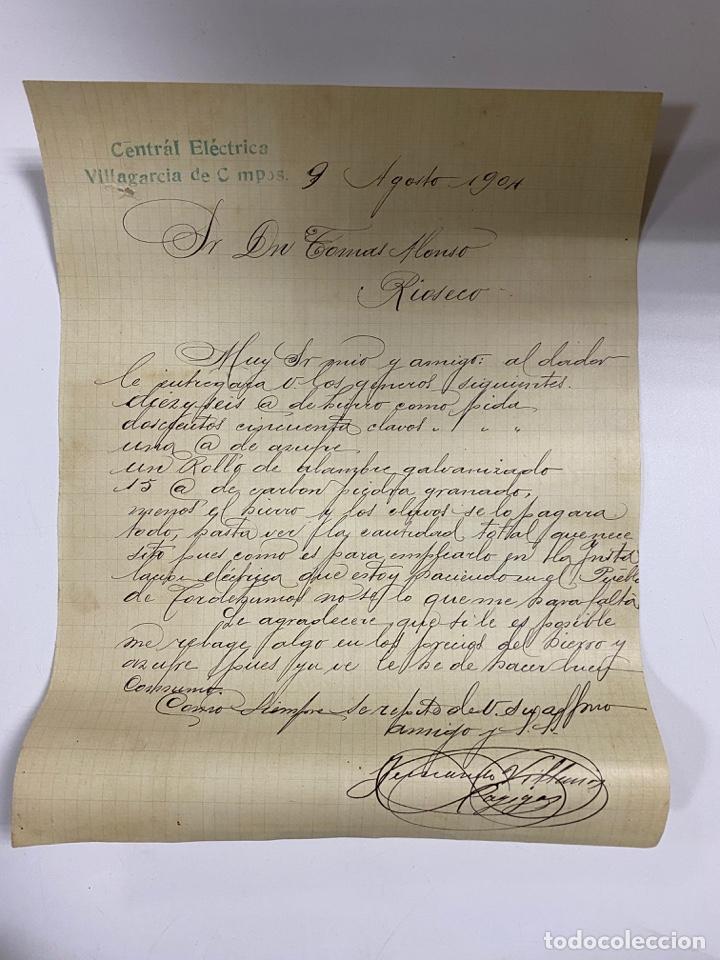 Centrál Eléctrica
Villagarcia de C mpos. 9 Agosto 1904
Sr Dn Tomas Alonso
Rioseco
Muy Sr mio y amigo: al dador
le entregara V los generos siguientes.
diez y seis @ de hierro como pida,
doscientos cincuenta clavos " " "
una @ de azufre
un Rollo de alambre galvanizado
15 @ de carbon piedra granado,
menos el hierro y los clavos se lo pagara
todo, hasta ver la cantidad total que nece
sito pues como es para emplearlo en la Insta
lacion eléctrica que estoy haciendo en el Pueblo
de Tordehumos no se lo que me hara falta
Le agradecere que si le es posible
me rebage algo en los precios del hierro y
azufre pues ya ve le he de hacer buen
Consumo.
Como siempre se repite de V. su affmo
amigo y S. S.
Fernando
todocoleccion
todocoleccion.net